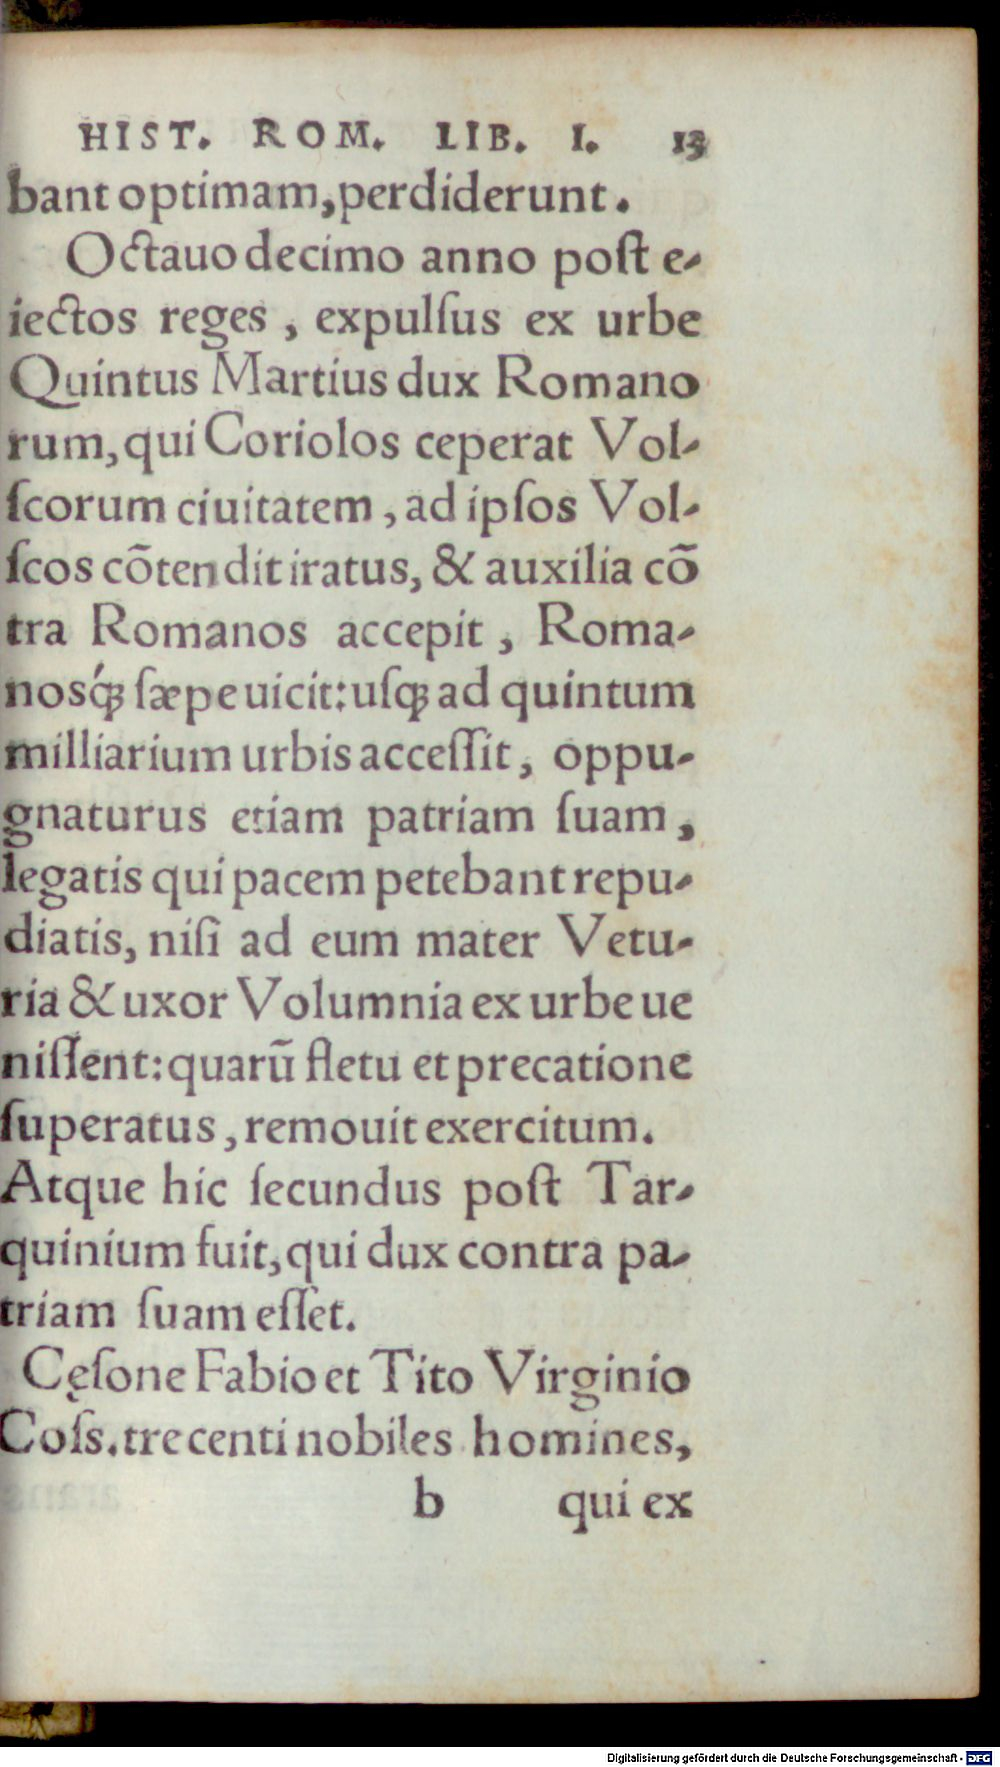 HIST. ROM. LIB. I. 13
bant optimam, perdiderunt.
Octauo decimo anno poſt e-
iectos reges, expulſus ex urbe
Quintus Martius dux Romano
rum, qui Coriolos ceperat Vol-
ſcorum ciuitatem, ad ipſos Vol-
ſcos cõtendit iratus, & auxilia cõ
tra Romanos accepit, Roma-
nosq́ꝫ ſæpe uicit: uſqꝫ ad quintum
milliarium urbis acceſſit, oppu-
gnaturus etiam patriam ſuam,
legatis qui pacem petebant repu-
diatis, niſi ad eum mater Vetu-
ria & uxor Volumnia ex urbe ue
niſſent: quarũ fletu et precatione
ſuperatus, remouit exercitum.
Atque hic ſecundus poſt Tar-
quinium fuit, qui dux contra pa-
triam ſuam eſſet.
Cęſone Fabio et Tito Virginio
Coſs. trecenti nobiles homines,
b qui ex
Digitalisierung gefördert durch die Deutsche Forschungsgemeinschaft - DFG